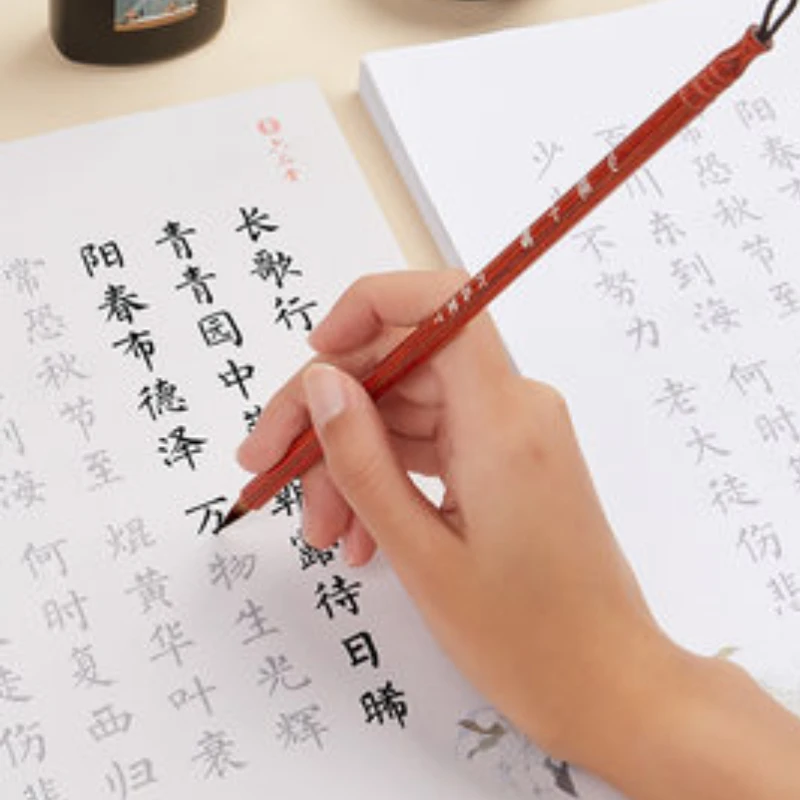 长歌行
青青园中葵 朝露待日晞
阳春布德泽 万物生光辉
常恐秋节至 焜黄华叶衰
到海 何时复西归
徒伤悲
阳春
恐秋节至
百川东到海 何时
少 不努力 老大徒伤悲